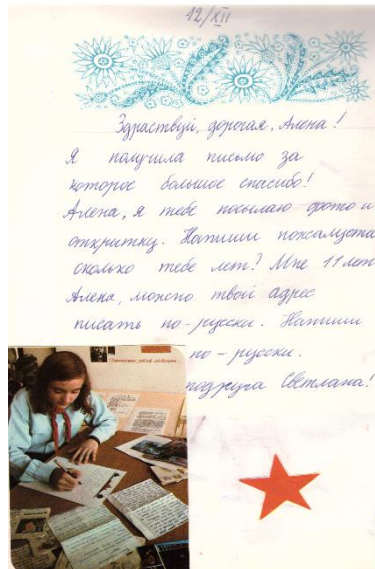 12/XII
Здраствуй, дорогая, Алена!
Я получила письмо за
которое большое спасибо!
Алена, я тебе посылаю фото и
открытку. Напиши пожалуста
сколько тебе лет? Мне 11 лет
Алена, можно твой адрес
писать по-русски. Напиши
по-русски.
подруга Светлана!